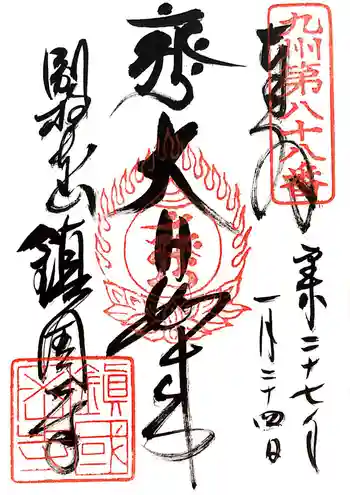 九州第八十八番
奉拝
平成二十七年
一月二十四日
大日如来
屏風山
鎮国寺
鎮国寺